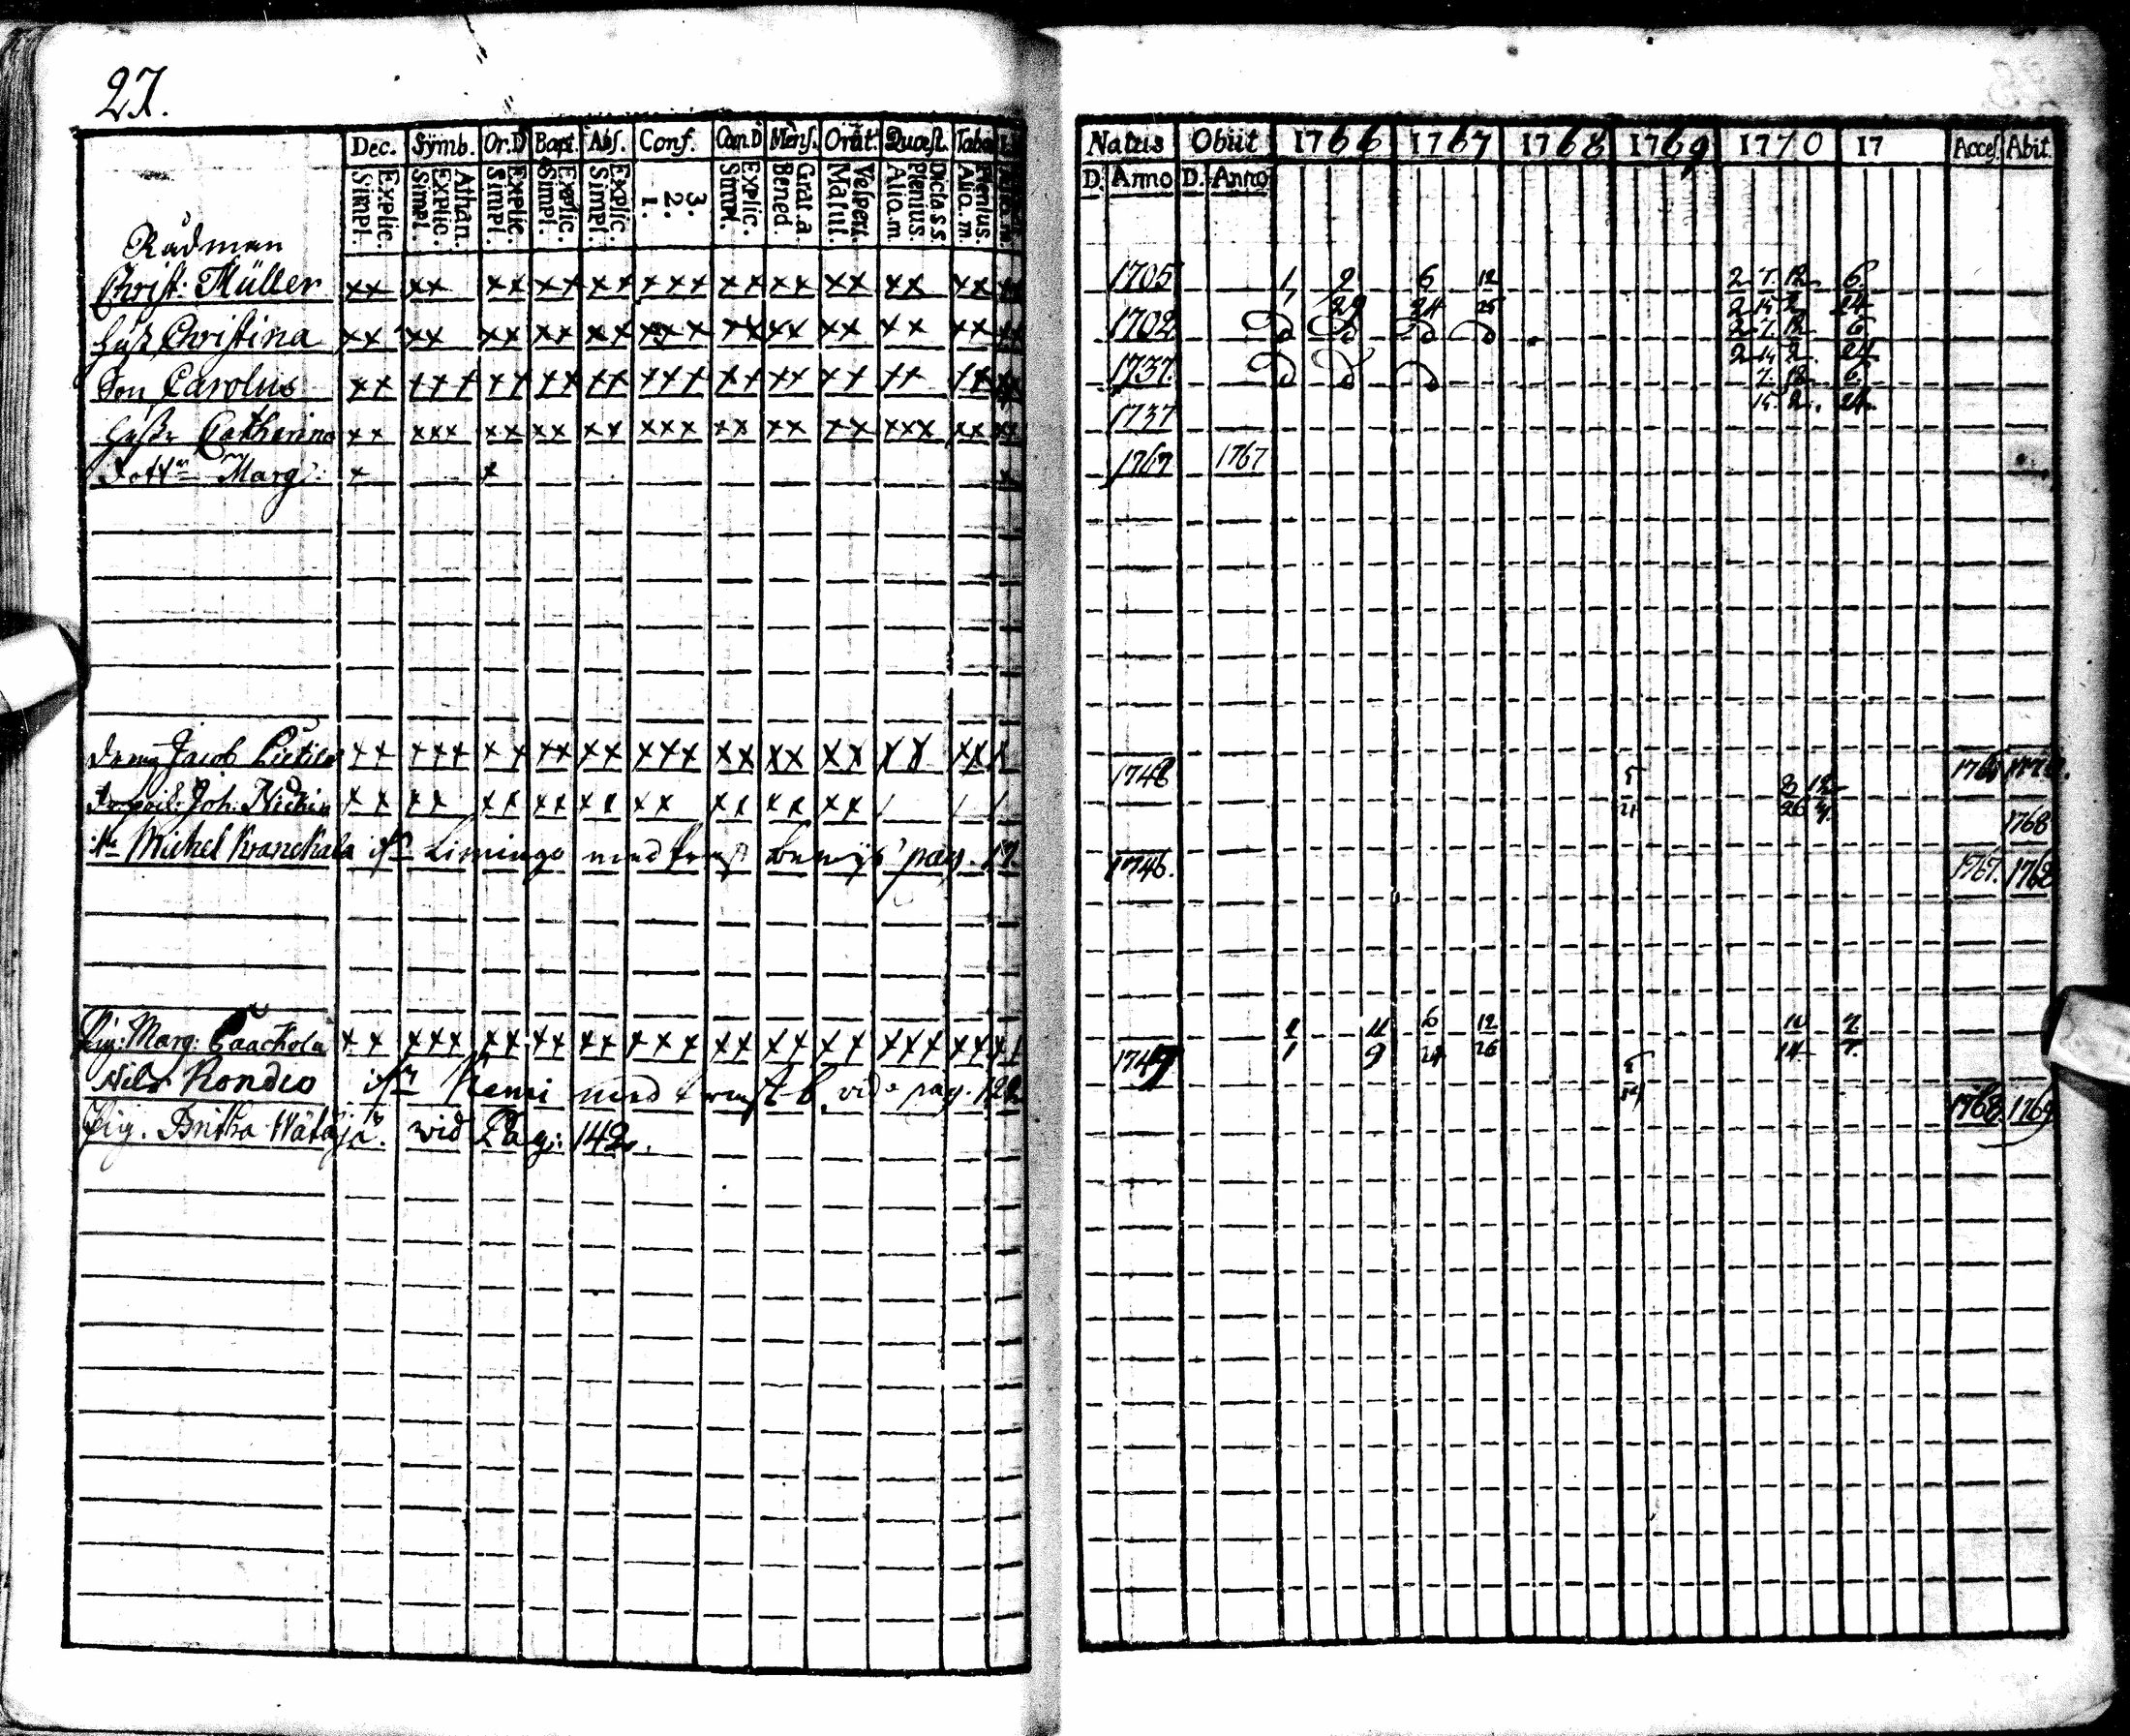 27.
Dec. Symb. Or.D Bapt. Abs. Conf. Can.D Mens. Orat. Quæst. Taba
Simpl. Explic. Simpl. Explic. Athan. Simpl. Explic. Simpl. Explic. Simpl. Explic. 1. 2. 3. Simpl. Explic. Bened Grat.a Matut. Vespert. Alio.m Plenius. Dicta s.s. Alio.m Plenius.
Rådman
Christ: Müller xx xx xx xx xx xxx xx xx xx xx xx
Christina xx xx xx xx xx xxx xx xx xx xx xx
Son Carolus xx xxx xx xx xx xxx xx xx xx xx xx
Catharina xx xxx xx xx xx xxx xx xx xx xxx xx
Marg: x x
Jacob xx xxx xx xx xx xxx xx xx xx xx xx
Joh: xx xx xx xx xx xx xx xx xx
Michel Krankala ifr Limingo med pag. 17.
Pig: Marg: Paackola xx xxx xx xx xx xxx xx xx xx xxx xx
Nils Rondeo ifr Kemi med vide pag. 122
Pig. Britha Wätäjä. wid Pag: 142.
Natus Obiit 1766 1767 1768 1769 1770 17 Acces. Abit.
D. Anno D. Anno
1705 1 2 6 12 2 7. 12 6.
29 24 25 2 15 2 24
1702 2 7. 12 6.
2 15 2. 24
1737. 7. 12 6.
15. 2. 24.
1737
1767 1767
1748 5 3 12 1765 1770.
21 26 4.
1768
1746. 1767. 1768
2 11 6 12 10 7.
1749 1 9 24 26 14 7.
5
24
1768 1769